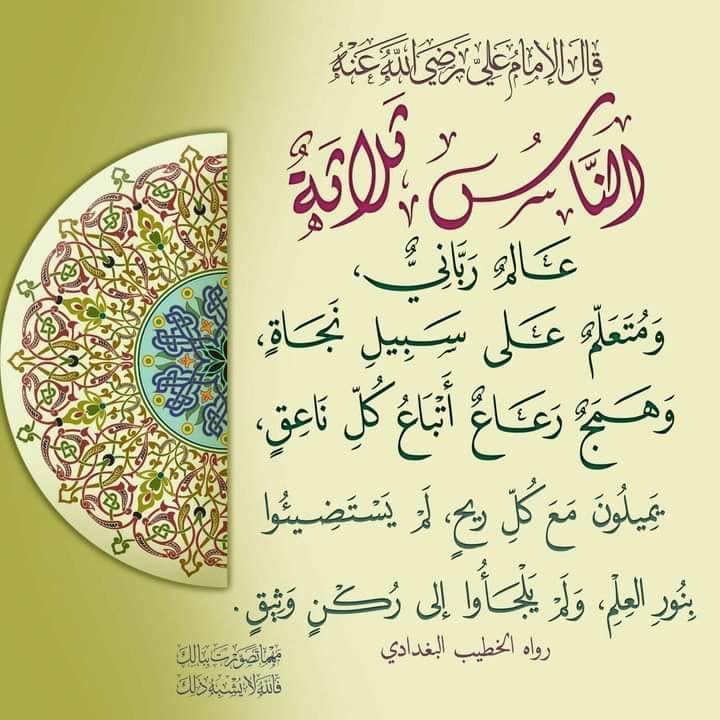 قَالَ الإِمَامُ عَلِيٌّ رَضِيَ اللهُ عَنْهُ
النَّاسُ ثَلَاثَةٌ
عَالِمٌ رَبَّانِيٌّ،
وَمُتَعَلِّمٌ عَلَى سَبِيلِ نَجَاةٍ،
وَهَمَجٌ رَعَاعٌ أَتْبَاعُ كُلِّ نَاعِقٍ،
يَمِيلُونَ مَعَ كُلِّ رِيحٍ، لَمْ يَسْتَضِيئُوا
بِنُورِ العِلْمِ، وَلَمْ يَلْجَأُوا إلى رُكْنٍ وَثِيقٍ.
رواه الخطيب البغدادي
مَهْمَا تَصَوَّرْتَ بِبَالِكَ
فَاللهُ لَا يُشْبِهُ ذَلِكَ